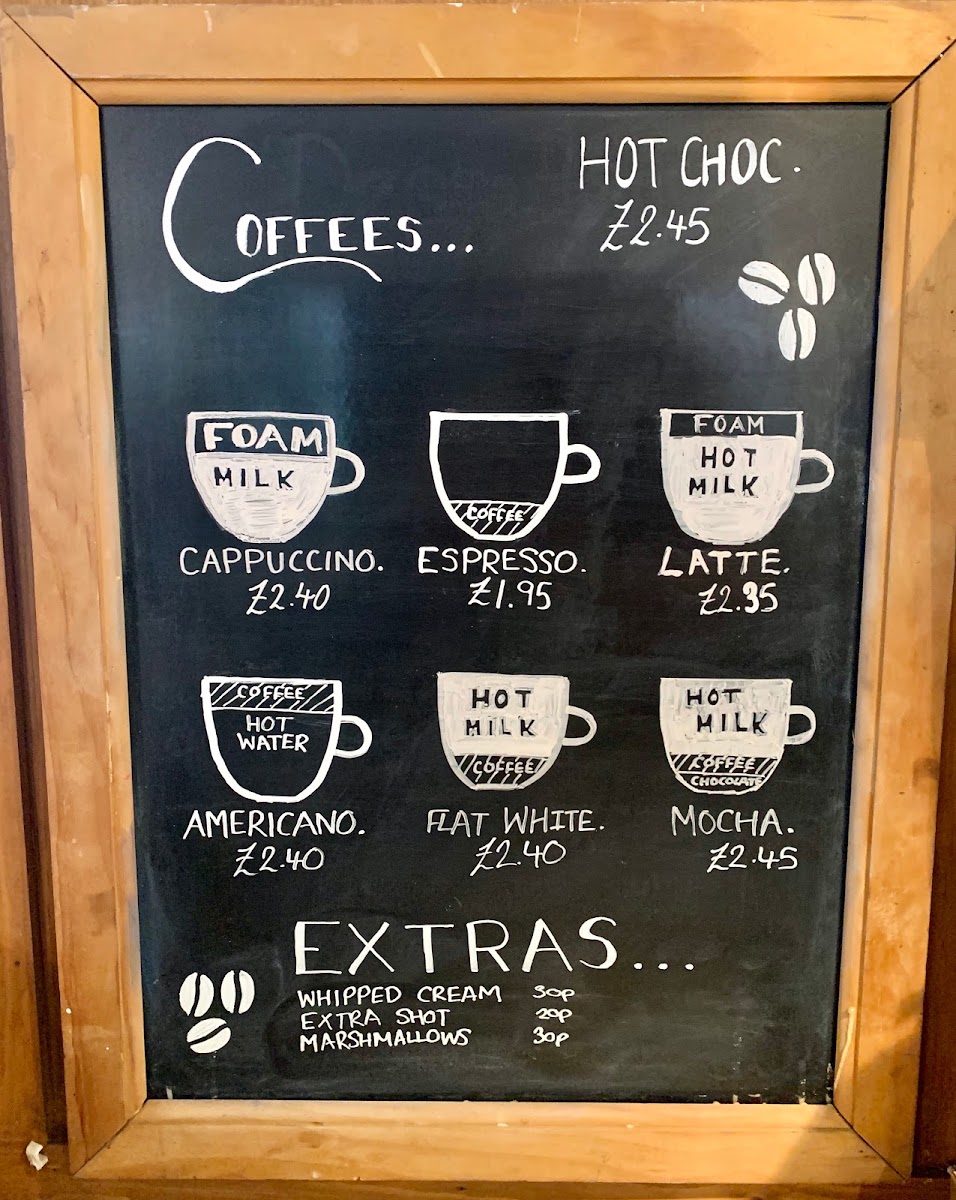 COFFEES...
HOT CHOC.
£2.45
FOAM
MILK
CAPPUCCINO.
£2.40
COFFEE
ESPRESSO.
£1.95
FOAM
HOT
MILK
LATTE.
£2.35
COFFEE
HOT
WATER
AMERICANO.
£2.40
HOT
MILK
COFFEE
FLAT WHITE.
£2.40
HOT
MILK
COFFEE
CHOCOLATE
MOCHA.
£2.45
EXTRAS...
WHIPPED CREAM 30p
EXTRA SHOT 20p
MARSHMALLOWS 30p